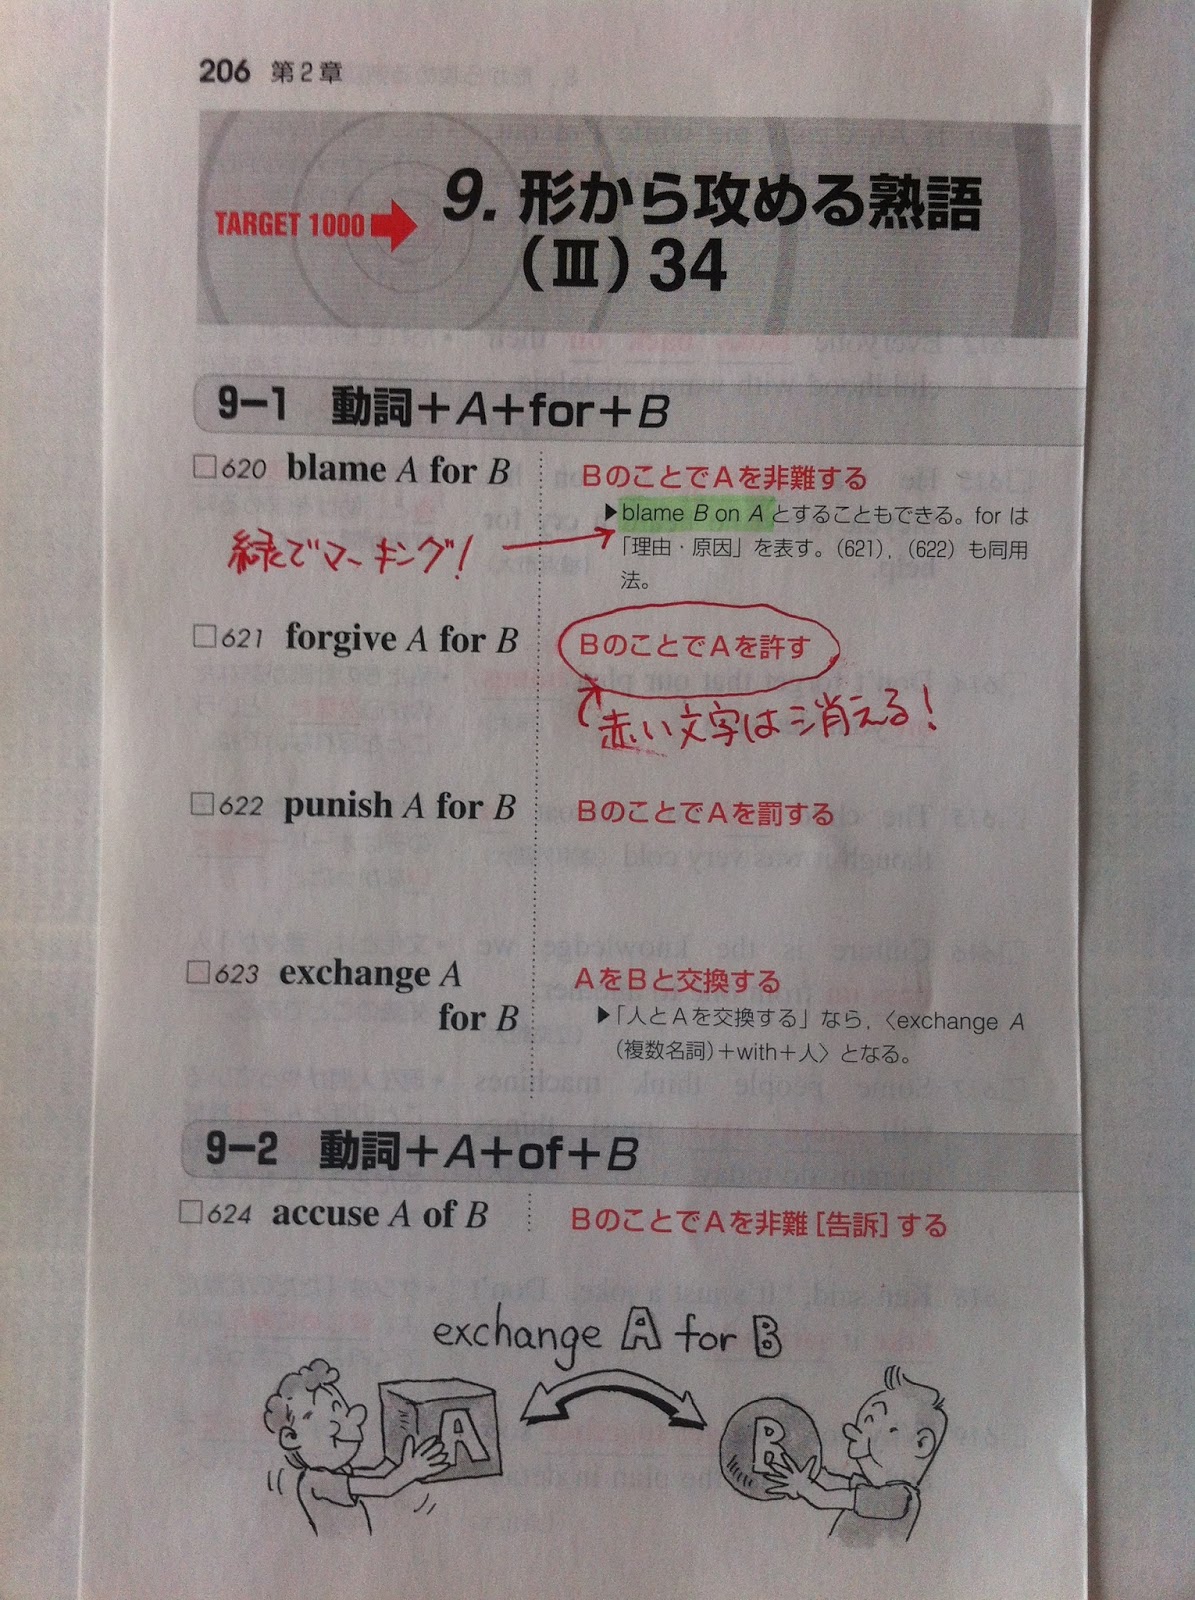 206 第2章
TARGET 1000
9. 形から攻める熟語
(Ⅲ) 34
9-1 動詞+A+for+B
□620 blame A for B
BのことでAを非難する
▶blame B on A とすることもできる。for は
「理由・原因」を表す。(621),(622)も同用
法。
緑でマーキング!
□621 forgive A for B
BのことでAを許す
赤い文字は消える!
□622 punish A for B
BのことでAを罰する
□623 exchange A
for B
AをBと交換する
▶「人とAを交換する」なら,〈exchange A
(複数名詞)+with+人〉となる。
9-2 動詞+A+of+B
□624 accuse A of B
BのことでAを非難[告訴]する
exchange A for B
A
B